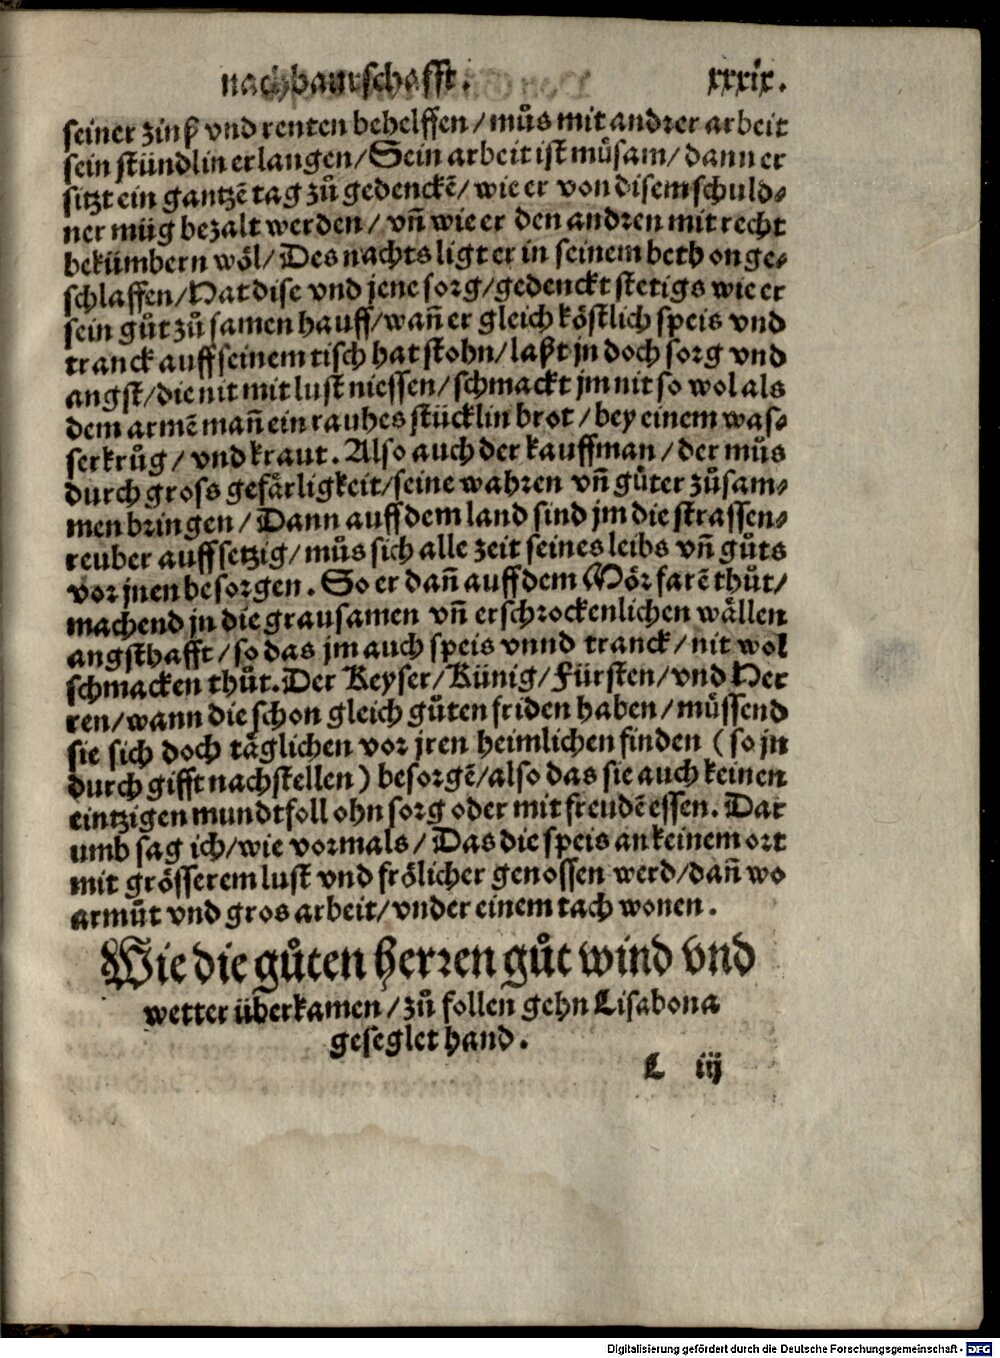 nachbaurschafft. xxxix.
seiner zinß vnd renten behelffen / můs mit andrer arbeit
sein stündlin erlangen / Sein arbeit ist můsam / dann er
sitzt ein gantzē tag zů gedenckē / wie er von disem schuld⸗
ner müg bezalt werden / vñ wie er den andren mit recht
bekümbern wöl / Des nachts ligt er in seinem beth onge⸗
schlaffen / Hat dise vnd jene sorg / gedenckt stetigs wie er
sein gůt zů samen hauff / wañ er gleich köstlich speis vnd
tranck auff seinem tisch hat stohn / laßt jn doch sorg vnd
angst / die nit mit lust niessen / schmackt jm nit so wol als
dem armē mañ ein rauhes stücklin brot / bey einem was⸗
serkrůg / vnd kraut. Also auch der kauffman / der můs
durch gross gefärligkeit / seine wahren vñ gůter zůsam⸗
men bringen / Dann auff dem land sind jm die strassen⸗
reuber auffsetzig / můs sich alle zeit seines leibs vñ gůts
vor jnen besorgen. So er dañ auff dem Mör farē thůt /
machend jn die grausamen vñ erschrockenlichen wällen
angsthafft / so das jm auch speis vnnd tranck / nit wol
schmacken thůt. Der Keyser / Künig / Fürsten / vnd Her
ren / wann die schon gleich gůten friden haben / müssend
sie sich doch täglichen vor jren heimlichen finden ( so jn
durch gifft nachstellen ) besorgē / also das sie auch keinen
eintzigen mundtfoll ohn sorg oder mit freudē essen. Dar
umb sag ich / wie vormals / Das die speis an keinem ort
mit grösserem lust vnd frölicher genossen werd / dañ wo
armůt vnd gros arbeit / vnder einem tach wonen.
Wie die gůten herren gůt wind vnd
wetter überkamen / zů follen gehn Lisabona
geseglet hand.
L iij
Digitalisierung gefördert durch die Deutsche Forschungsgemeinschaft - DFG